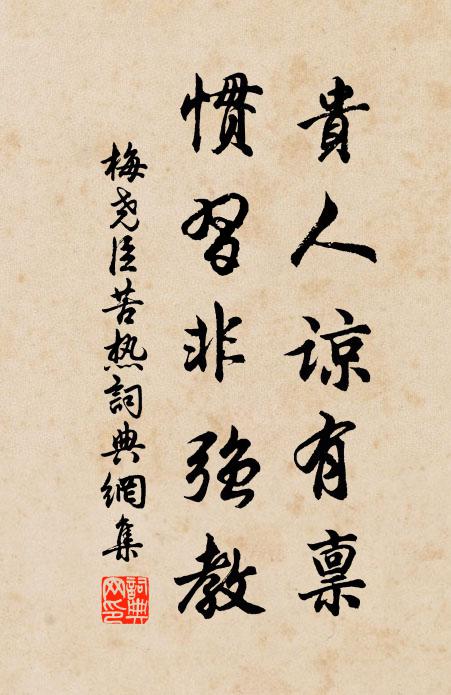 貴人諒有禀
慣習非強教
梅尧臣苦热詞典網集
詞典网印